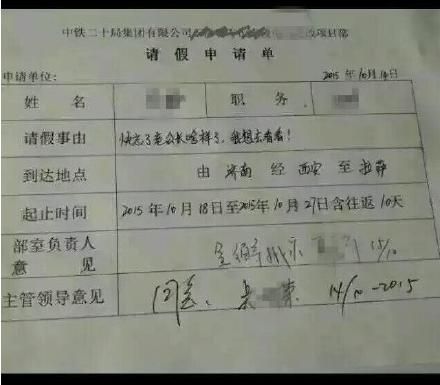 中铁二十局集团有限公司 改项目部
请假申请单
申请单位： 2015年10月14日
姓名 职务
请假事由 快忘了老公长啥样了，我想去看看！
到达地点 由 济南 经 西安 至 拉萨
起止时间 2015年10月18日至2015年10月27日含往返10天
部室负责人意见 15/10
主管领导意见 同意、 14/10-2015